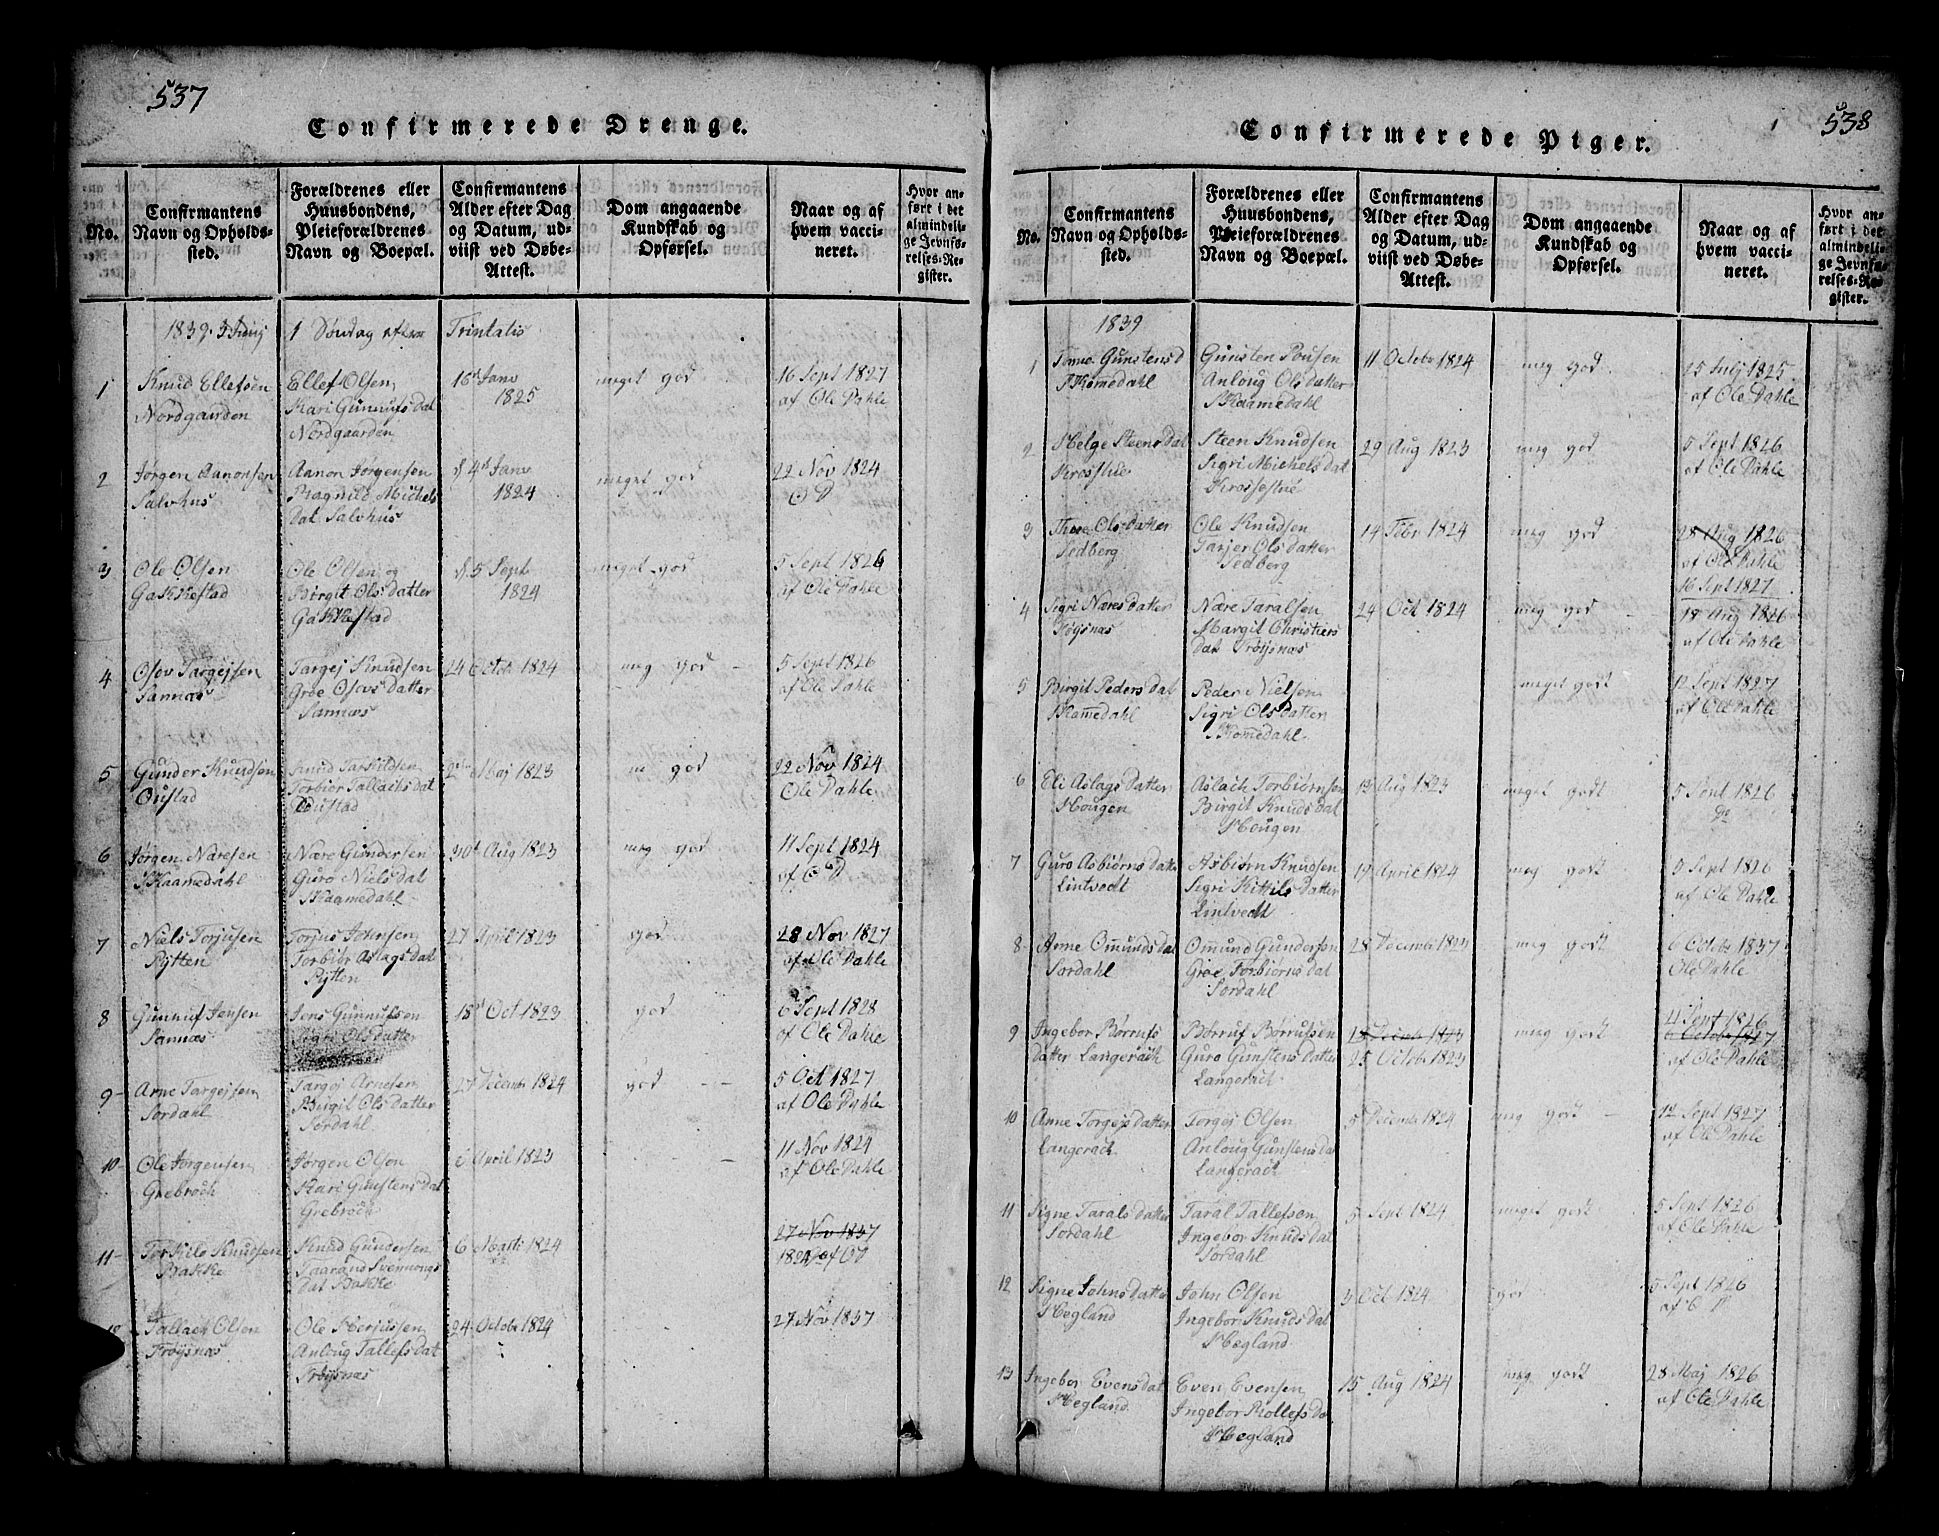 537
Confirmerede Drenge.
No.
Confirmantens Navn og Opholdssted.
Forældrenes eller Huusbondens, Pleieforældrenes Navn og Boepæl.
Confirmantens Alder efter Dag og Datum, udviist ved Døbe-Attest.
Dom angaaende Kundskab og Opførsel.
Naar og af hvem vaccineret.
Hvor anført i det almindelige Jevnførelses-Register.
1839. Junj 1 Søndag efter Trintatis
1 Knud Ellefsen
Nordgaarden
Ellef Olsen
Kari Gunnufs dat
Nordgaarden
16d Janv
1825
meget god
16 Sept 1827
af Ole Dahle
2 Jørgen Aanonsen
Salvhus
Aanon Jørgensen
Ragnild Michels
dat Salvhus
d 4d Janv
1824
meget god
22 Nov 1824
O D
3 Ole Olsen
Gakkestad
Ole Olsen og
Birgit Olsdatter
Gakkestad
d. 5 Sept
1824
meget god
5 Sept 1826
af Ole Dahle
4 Osov Targejsen
Sannæs
Targej Knudsen
Groe Osovsdatter
Sannæs
24 Octob 1824
meg god
5 Sept 1826
af Ole Dahle
5 Gunder Knudsen
Oustad
Knud Tarkildsen
Torbior Tallachsdat
Oustad
Maj 1823
m god
22 Nov 1824
Ole Dahle
6 Jørgen Næresen
Kaamedahl
Nære Gundersen
Guro Niels dat
Kaamedahl
30d Aug 1823
meg god
11 Sept 1824
af O D
7 Niels Torjusen
Rÿtten
Torjus Johnsen
Torbior Aslagsdat
Rÿtten
27 April 1823
god
28 Nov 1827
af Ole Dahle
8 Gunnuf Jensen
Sannæs
Jens Gunnufsen
Sigri Olsdatter
18d Oct 1823
god
6 Sept 1828
af Ole Dahle
9 Arne Targejsen
Sordahl
Targej Arnesen
Birgit Olsdatter
Sordahl
27 Decemb 1824
god
5 Oct 1827
af Ole Dahle
10 Ole Jørgensen
Grebroch
Jørgen Olsen
Kari Gunstensdat
Grebroch
6 April 1823
11 Nov 1824
af Ole Dahle
11 Torkild Knudsen
Bakke
Knud Gundersen
Taarand Svennongs
dat Bakke
6 Marti 1824
27 Nov 1837
1824 af OD
Tallach Olsen
Frøysnæs
Ole Herjusen
Anloug Tallefsdat
Frøysnæs
24 Octobr 1824
27 Nov 1837
538
Confirmerede Piger.
No.
Confirmantens Navn og Opholdssted.
Forældrenes eller Huusbondens, Pleieforældrenes Navn og Boepæl.
Confirmantens Alder efter Dag og Datum, udviist ved Døbe-Attest.
Dom angaaende Kundskab og Opførsel.
Naar og af hvem vaccineret.
Hvor anført i det almindelige Jevnførelses-Register.
1839
1 Gunstensd
Gunsten Pousen
Anloug Olsdatter
Kaamedahl
11 Octobr 1824
meg god
15 Julj 1825
af Ole Dahle
2 Helge Steensdat
Steen Knudsen
Sigri Michelsdat
29 Aug 1823
meg god
5 Sept 1826
af Ole Dahle
3 Thore Olsdatter
Sedberg
Ole Knudsen
Tarjer Olsdatter
Sedberg
14 Febr 1824
meg god
28 Aug 1826
af Ole Dahle
16 Sept 1827
4 Sigri Næresdatter
Frøysnæs
Nære Taralsen
Margit Christiens
dat Frøysnæs
24 Oct 1824
meg god
18 Aug 1826
af Ole Dahle
5 Birgit Pedersdat
Peder Nielsen
Sigri Olsdatter
meget godt
12 Sept 1827
af Ole Dahle
6 Eli Aslagsdatter
Hougen
Aslach Torbiørnsen
Birgit Knudsdat
Hougen
13 Aug 1823
meget godt
5 Sept 1826
Do
7 Guro Asbiørnsdatter
Lintvedt
Asbiørn Knudsen
Sigri Kittilsdatter
Lintvedt
17 April 1824
meg godt
5 Sept 1826
af Ole Dahle
8 Anne Omundsdat
Sordahl
Omund Gundersen
Groe Torbiørnsdat
Sordahl
28 Decemb 1823
meg godt
6 Octobr 1837
Ole Dahle
9 Ingebor Børrufs
datter Langerach
Børruf Børrufsen
Guro Gunstensdatter
Langerach
13 Decemb 1823
25 Octobr 1823
meg godt
4 Sept 1826
6 Octobr 1827
af Ole Dahle
10 Anne Torgejsdatter
Langerach
Torgej Olsen
Anloug Gunstensdat
Langerach
5 Decemb 1824
meg godt
12 Sept 1827
af Ole Dahle
11 Signe Taralsdatter
Sordahl
Taral Tallefsen
Ingebor Knudsdat
Sordahl
5 Sept 1824
meget godt
5 Sept 1826
af Ole Dahle
12 Signe Johnsdatter
Hægland
John Olsen
Ingebor Knudsdat
Hægland
3 Oct 1824
god
5 Sept 1826
af O D
13 Ingebor Evensdat
Hægland
Even Evensen
Ingebor Rollefsda
Hægland
15 Aug 1824
meg godt
28 Maj 1826
af Ole Dahle